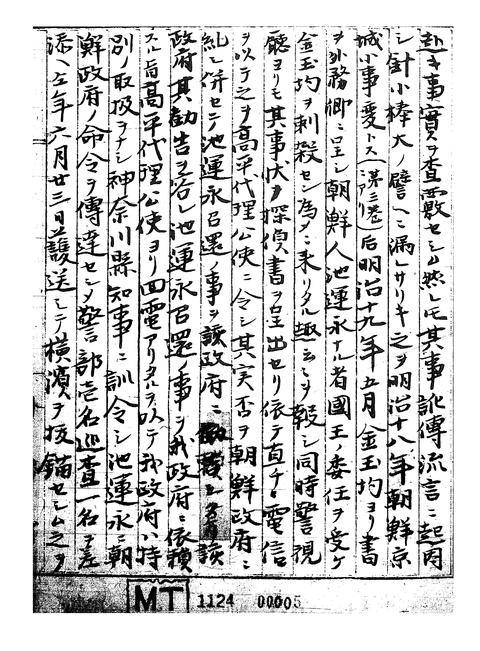 赴キ事實ヲ査覈セシム然レ𪜈其事訛傳流言ニ起因
シ針小棒大ノ譬ヘニ漏レサリキ之ヲ明治十八年朝鮮京
城小事変トス(第三巻ニアリ)后明治十九年五月金玉均ヨリ書
ヲ外務卿ニ呈シ朝鮮人池運永ナル者國王ノ委任ヲ受ケ
金玉均ヲ刺殺セン為メニ来リタル趣云々ヲ報シ同時警視
廳ヨリモ其事状ノ探偵書ヲ呈出セリ依テ直チニ電信
ヲ以テ之ヲ高平代理公使ニ令シ其実否ヲ朝鮮政府ニ
糺シ併セテ池運永召還ノ事ヲ該政府ニ勧告シタリ該
政府其勧告ヲ容レ池運永召還ノ事ヲ我政府ニ依頼
スル旨高平代理公使ヨリ回電アリタルヲ以テ我政府ハ特
別ノ取扱ヲナシ神奈川縣知事ニ訓令シ池運永ニ朝
鮮政府ノ命令ヲ傳達セシメ警部壱名巡査一名ヲ差
添ヘ仝年六月廿三日護送シテ横濱ヲ抜錨セシム之ヲ
MT 1124 00005